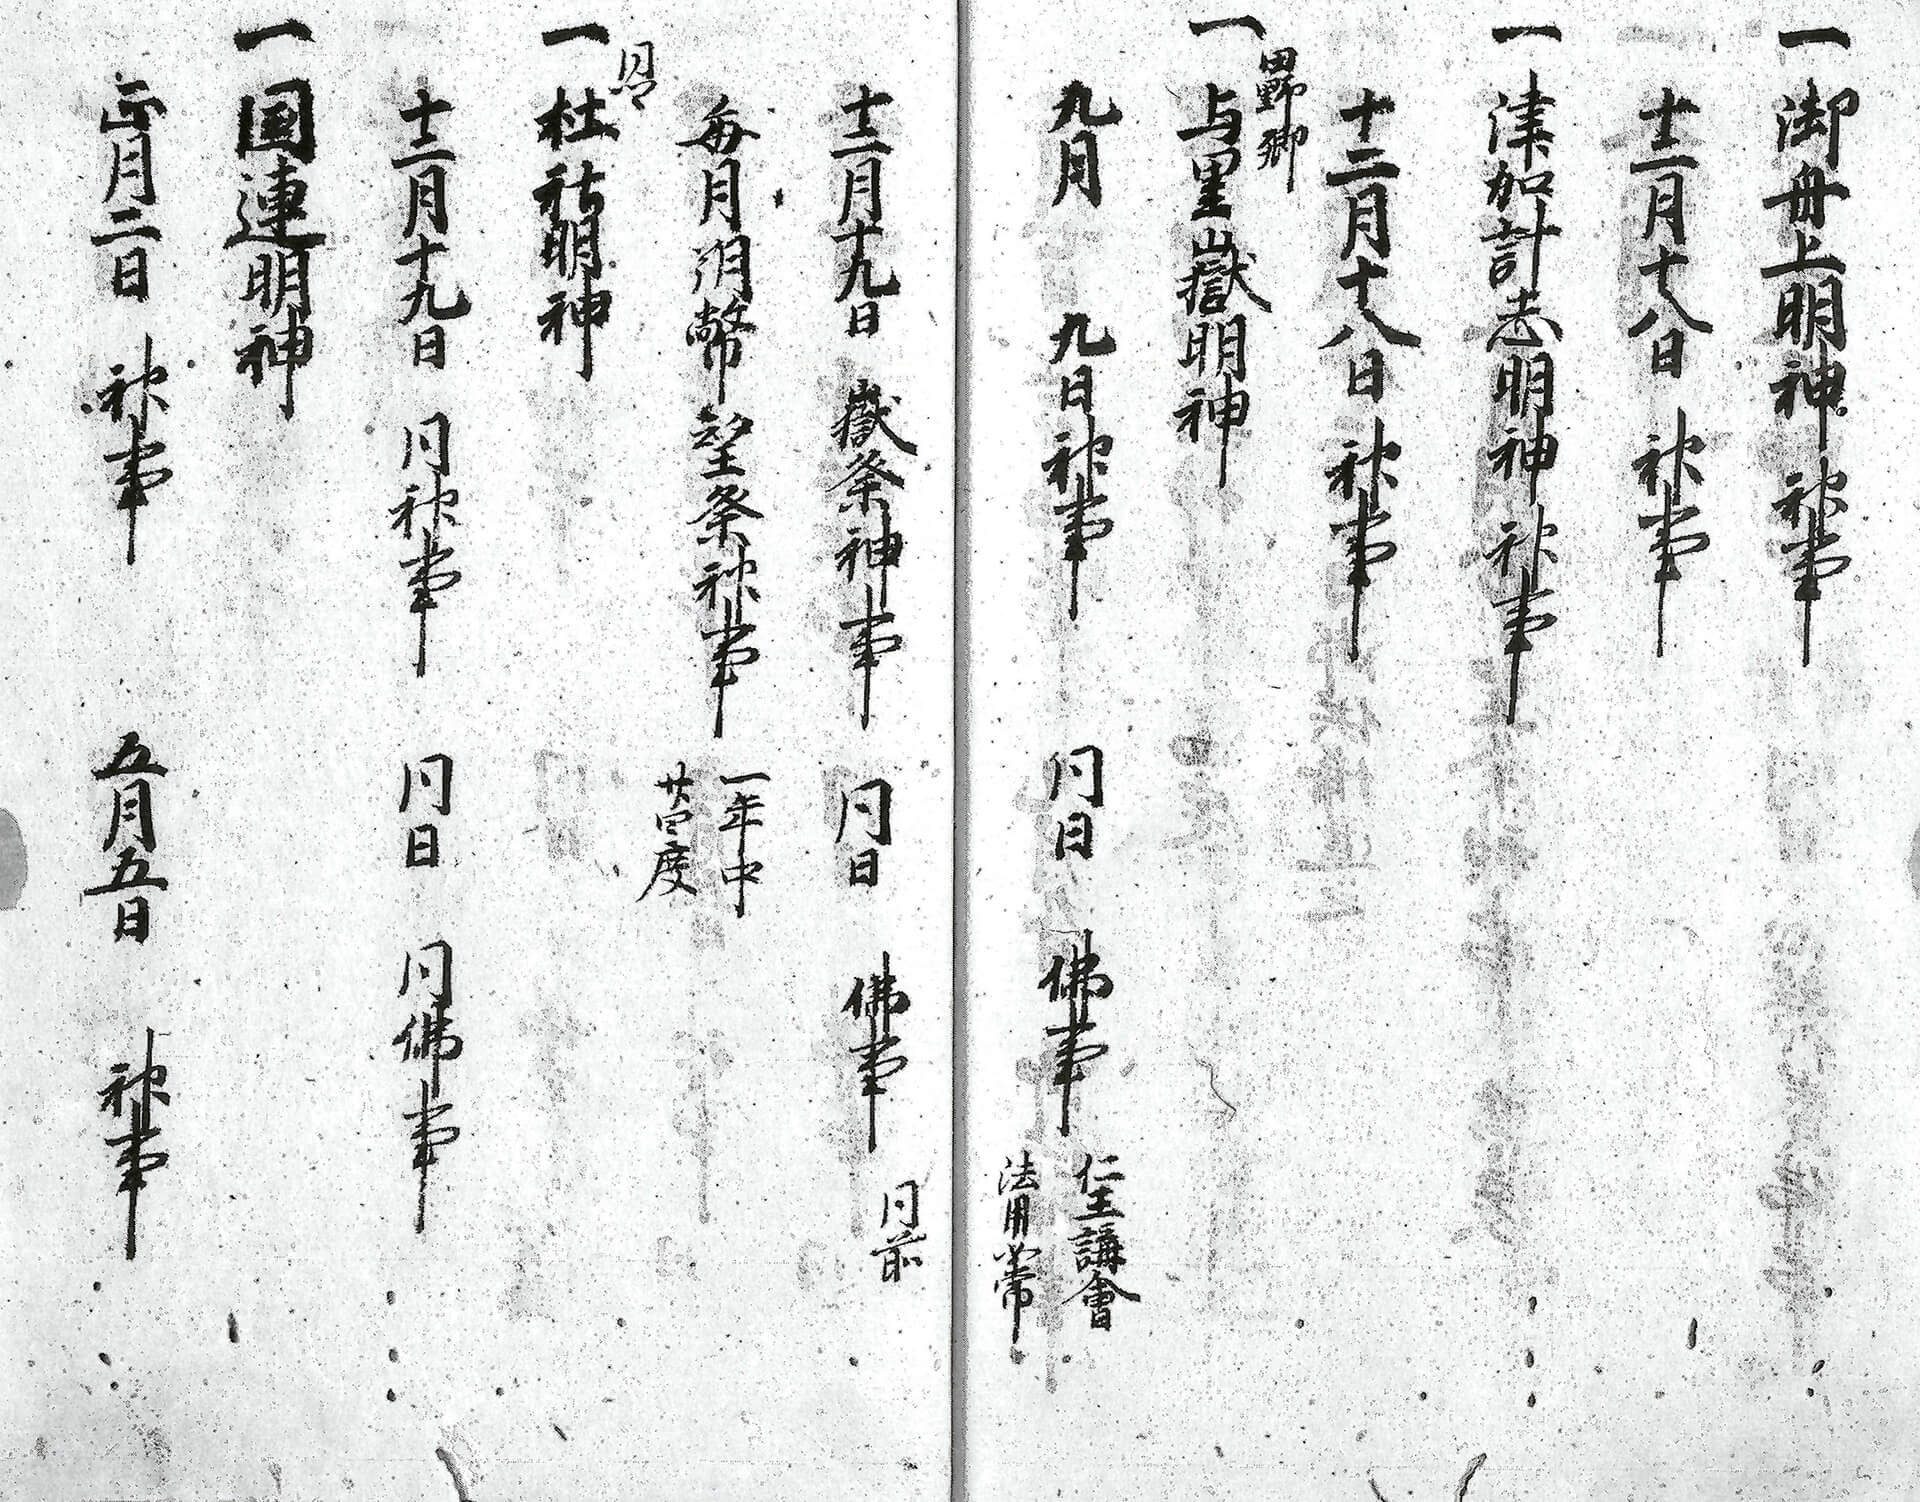 一御舟上明神神事
十二月十八日神事
一津加計志明神神事
十二月十八日神事
田野郷
一与里嶽明神
九月　九日神事　同日　佛事
仁王講會
法用常
十二月十九日　嶽祭神事　同日　佛事
同前
毎月朔幣望祭神事
一年中
廿四度
一杜社明神
十二月十九日　同神事　同日　同佛事
一国連明神
正月二日　神事　五月五日　神事